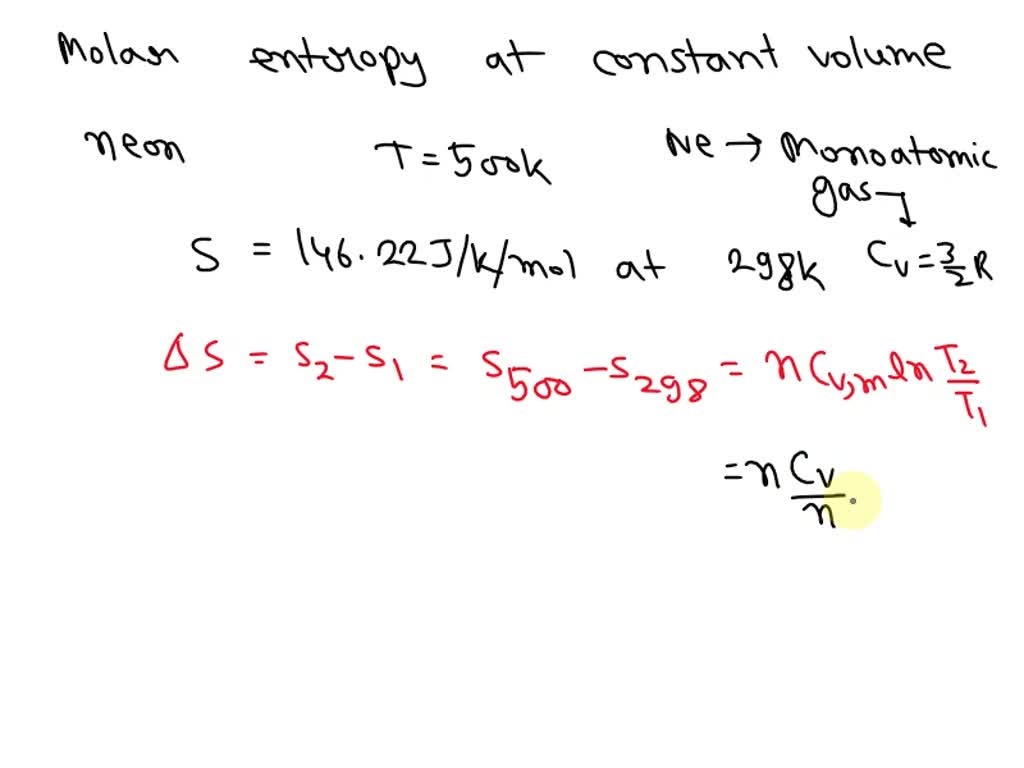 Molar entropy at constant volume
neon T = 500K Ne → Monoatomic gas
S = 146.22J/K/mol at 298K Cv = 3/2 R
ΔS = S2 - S1 = S500 - S298 = n Cv,m ln T2/T1
= n Cv/n